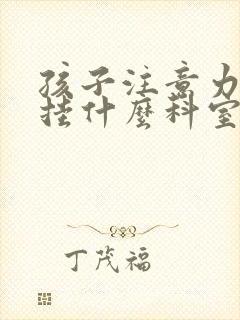 孩子注意力
挂什麼科室
丁茂福